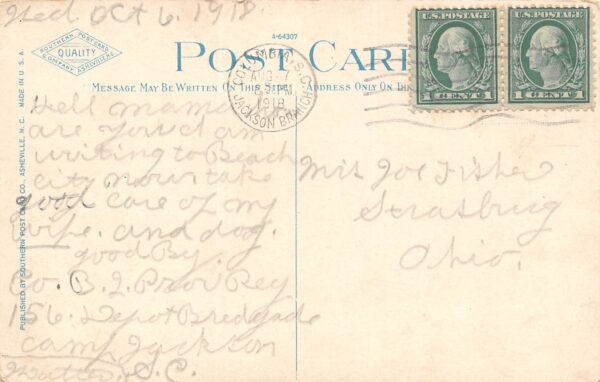 Wed. Oct 6. 1918.
A-64307
SOUTHERN POST CARD
QUALITY
COMPANY ASHEVILLE
POST CARD
MESSAGE MAY BE WRITTEN ON THIS SIDE
ADDRESS ONLY ON THIS
COLUMBIA, S.C.
AUG 7
1918
JACKSON BRANCH
U.S. POSTAGE
1 CENT 1
U.S. POSTAGE
1 CENT 1
MADE IN U.S.A.
PUBLISHED BY SOUTHERN POST CARD CO., ASHEVILLE, N.C.
Hell mama
are you I am
writing to Beach
city now take
good care of my
wife. and dog.
good By.
Co. B. 2 Prov Reg
156. Depot Bredgade
Camp Jackson
S.C.
Mrs Joe Fisher
Strasburg
Ohio.